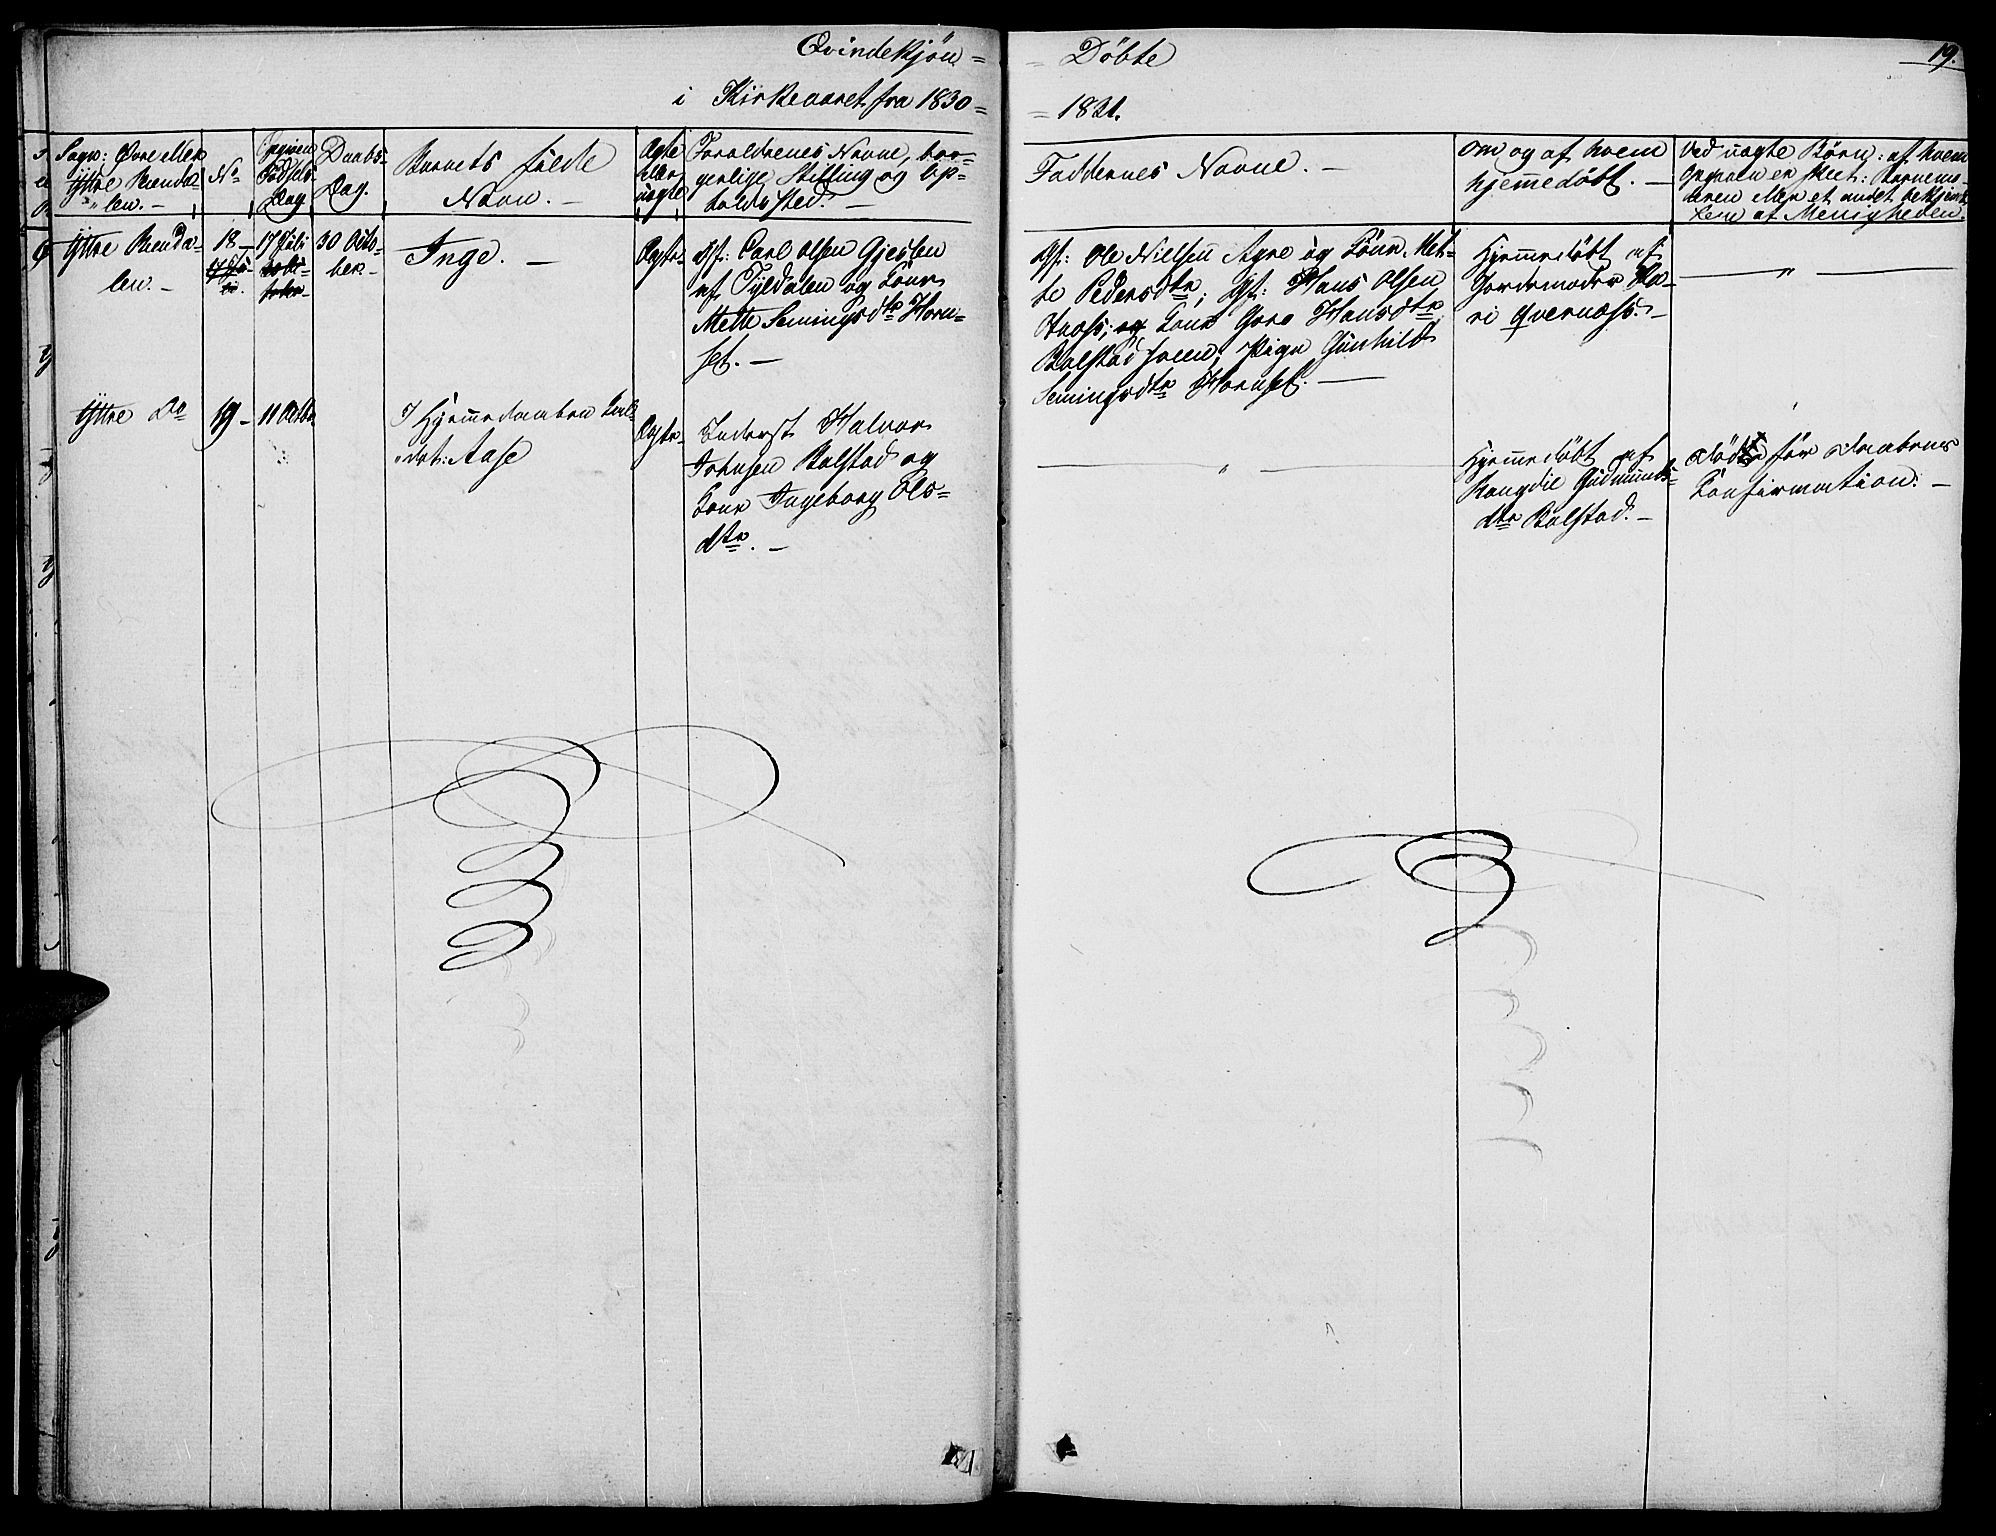 Qvindekjøn =
= Döbte
19.
i Kirkeaaret fra 1830 =
= 1831.
Sogn: Øvre eller
Yttre Renda-
len. -
No
Opgiven
Födsels
Dag
Daabs-
Dag.
Barnets fulde
Navn. -
Ægte
eller
uægte
Forældrenes Navne, bor-
gerlige Stilling og Op-
holdssted. -
Faddernes Navne. -
Om og af hvem
hjemmedöbt. -
Ved uægte Børn: af hvem
Opgiven er skeet: Barnemo-
deren eller et andet bekjendt
Lem af Menigheden.
Yttre Renda-
len. -
18 -
17 Juli
30 Octo-
ber -
Inge. -
Ægte -
Gf: Carl Olsen Gjesten
af Tyldalen og Kone
Mette Semingsdtr Horn-
set. -
Gf: Ole Nielsen Agre og Kone Met-
te Pedersdtr; Gf: Hans Olsen
og Kone Goro Hansdtr
Balstad Pige Gunhild
Semingsdtr Hornset. -
Hjemmedöbt af
Jordemoder Ka-
ri Qvernæss. -
"
Yttre Do
19 -
11 Octbr
I Hjemmedaaben kal-
det: Aase
Ægte -
Inderst Halvor
Johnsen Balstad og
Kone Ingeborg Ols-
dtr. -
"
Hjemmedöbt af
Gudmunds-
dtr Balstad. -
död för Daabens
Confirmation: -